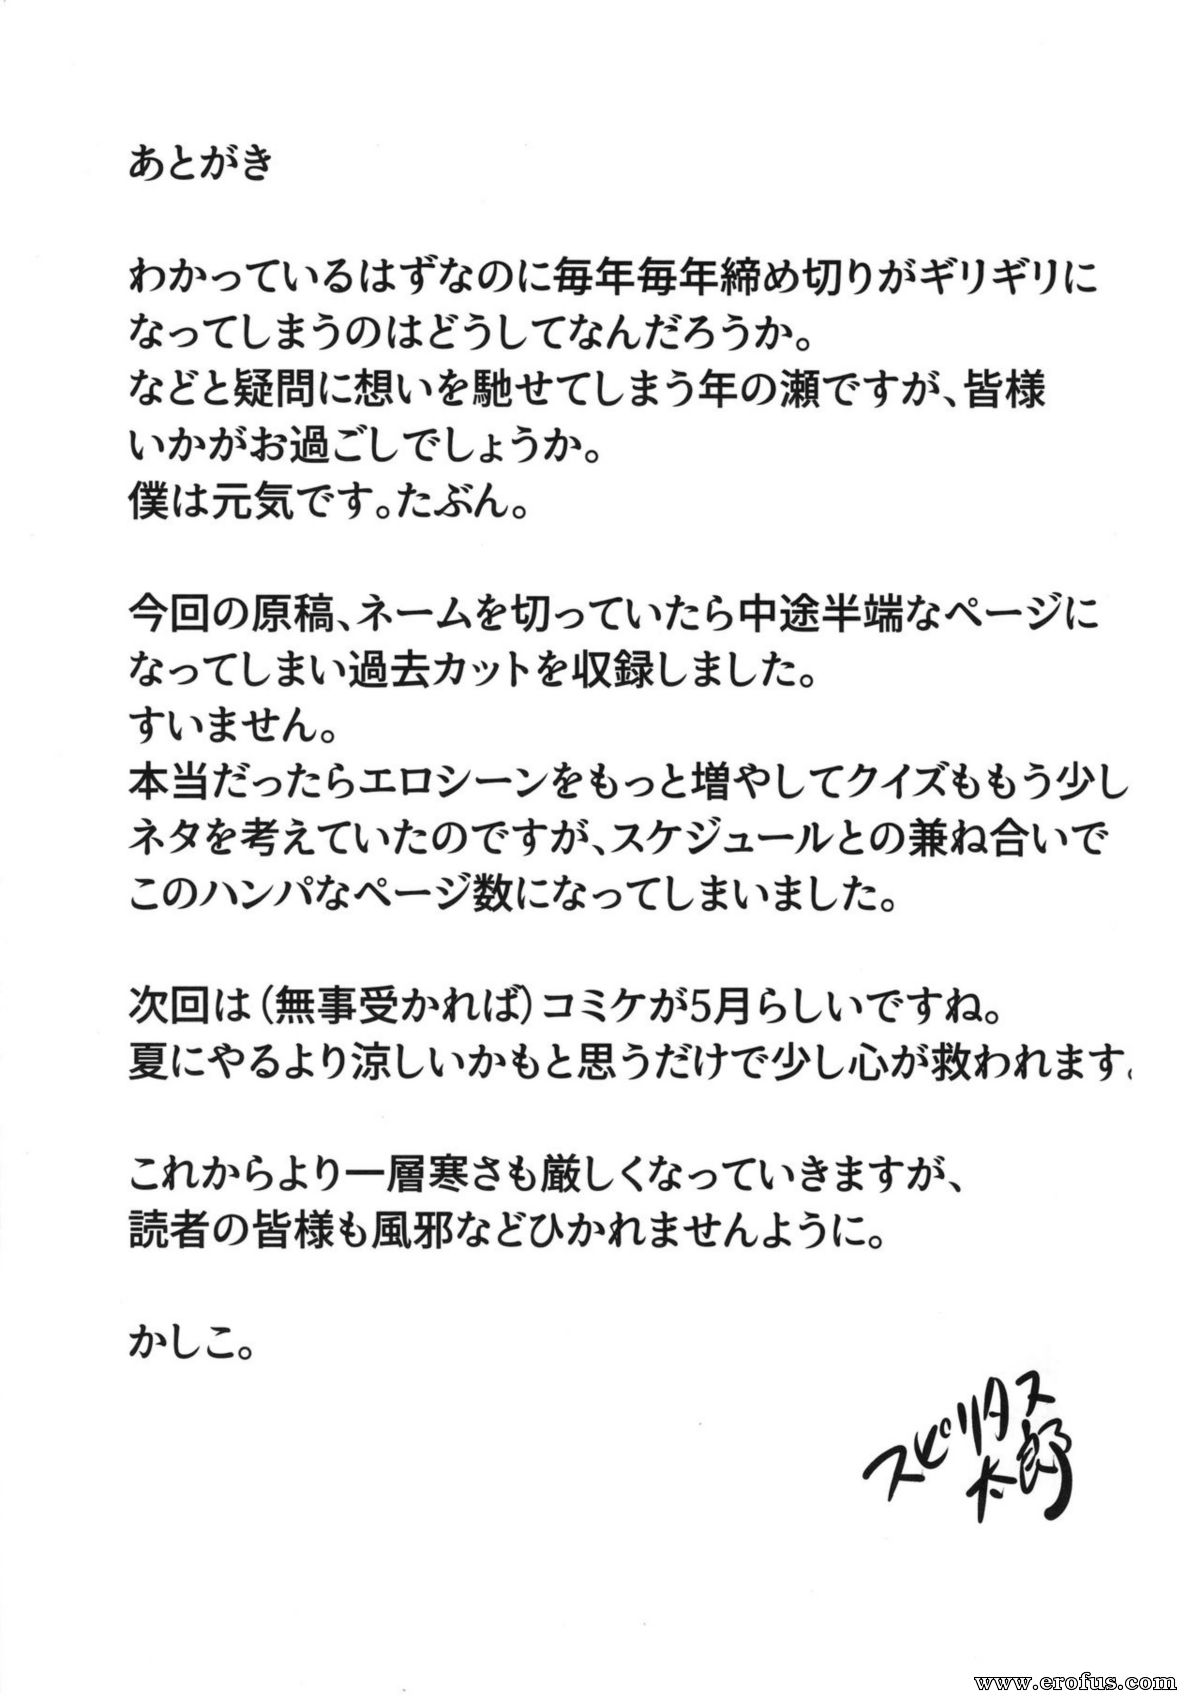 あとがき
わかっているはずなのに毎年毎年締め切りがギリギリに
なってしまうのはどうしてなんだろうか。
などと疑問に想いを馳せてしまう年の瀬ですが、皆様
いかがお過ごしでしょうか。
僕は元気です。たぶん。
今回の原稿、ネームを切っていたら中途半端なページに
なってしまい過去カットを収録しました。
すいません。
本当だったらエロシーンをもっと増やしてクイズももう少し
ネタを考えていたのですが、スケジュールとの兼ね合いで
このハンパなページ数になってしまいました。
次回は（無事受かれば）コミケが5月らしいですね。
夏にやるより涼しいかもと思うだけで少し心が救われます。
これからより一層寒さも厳しくなっていきますが、
読者の皆様も風邪などひかれませんように。
かしこ。
スピリタス
太郎
www.erofus.com